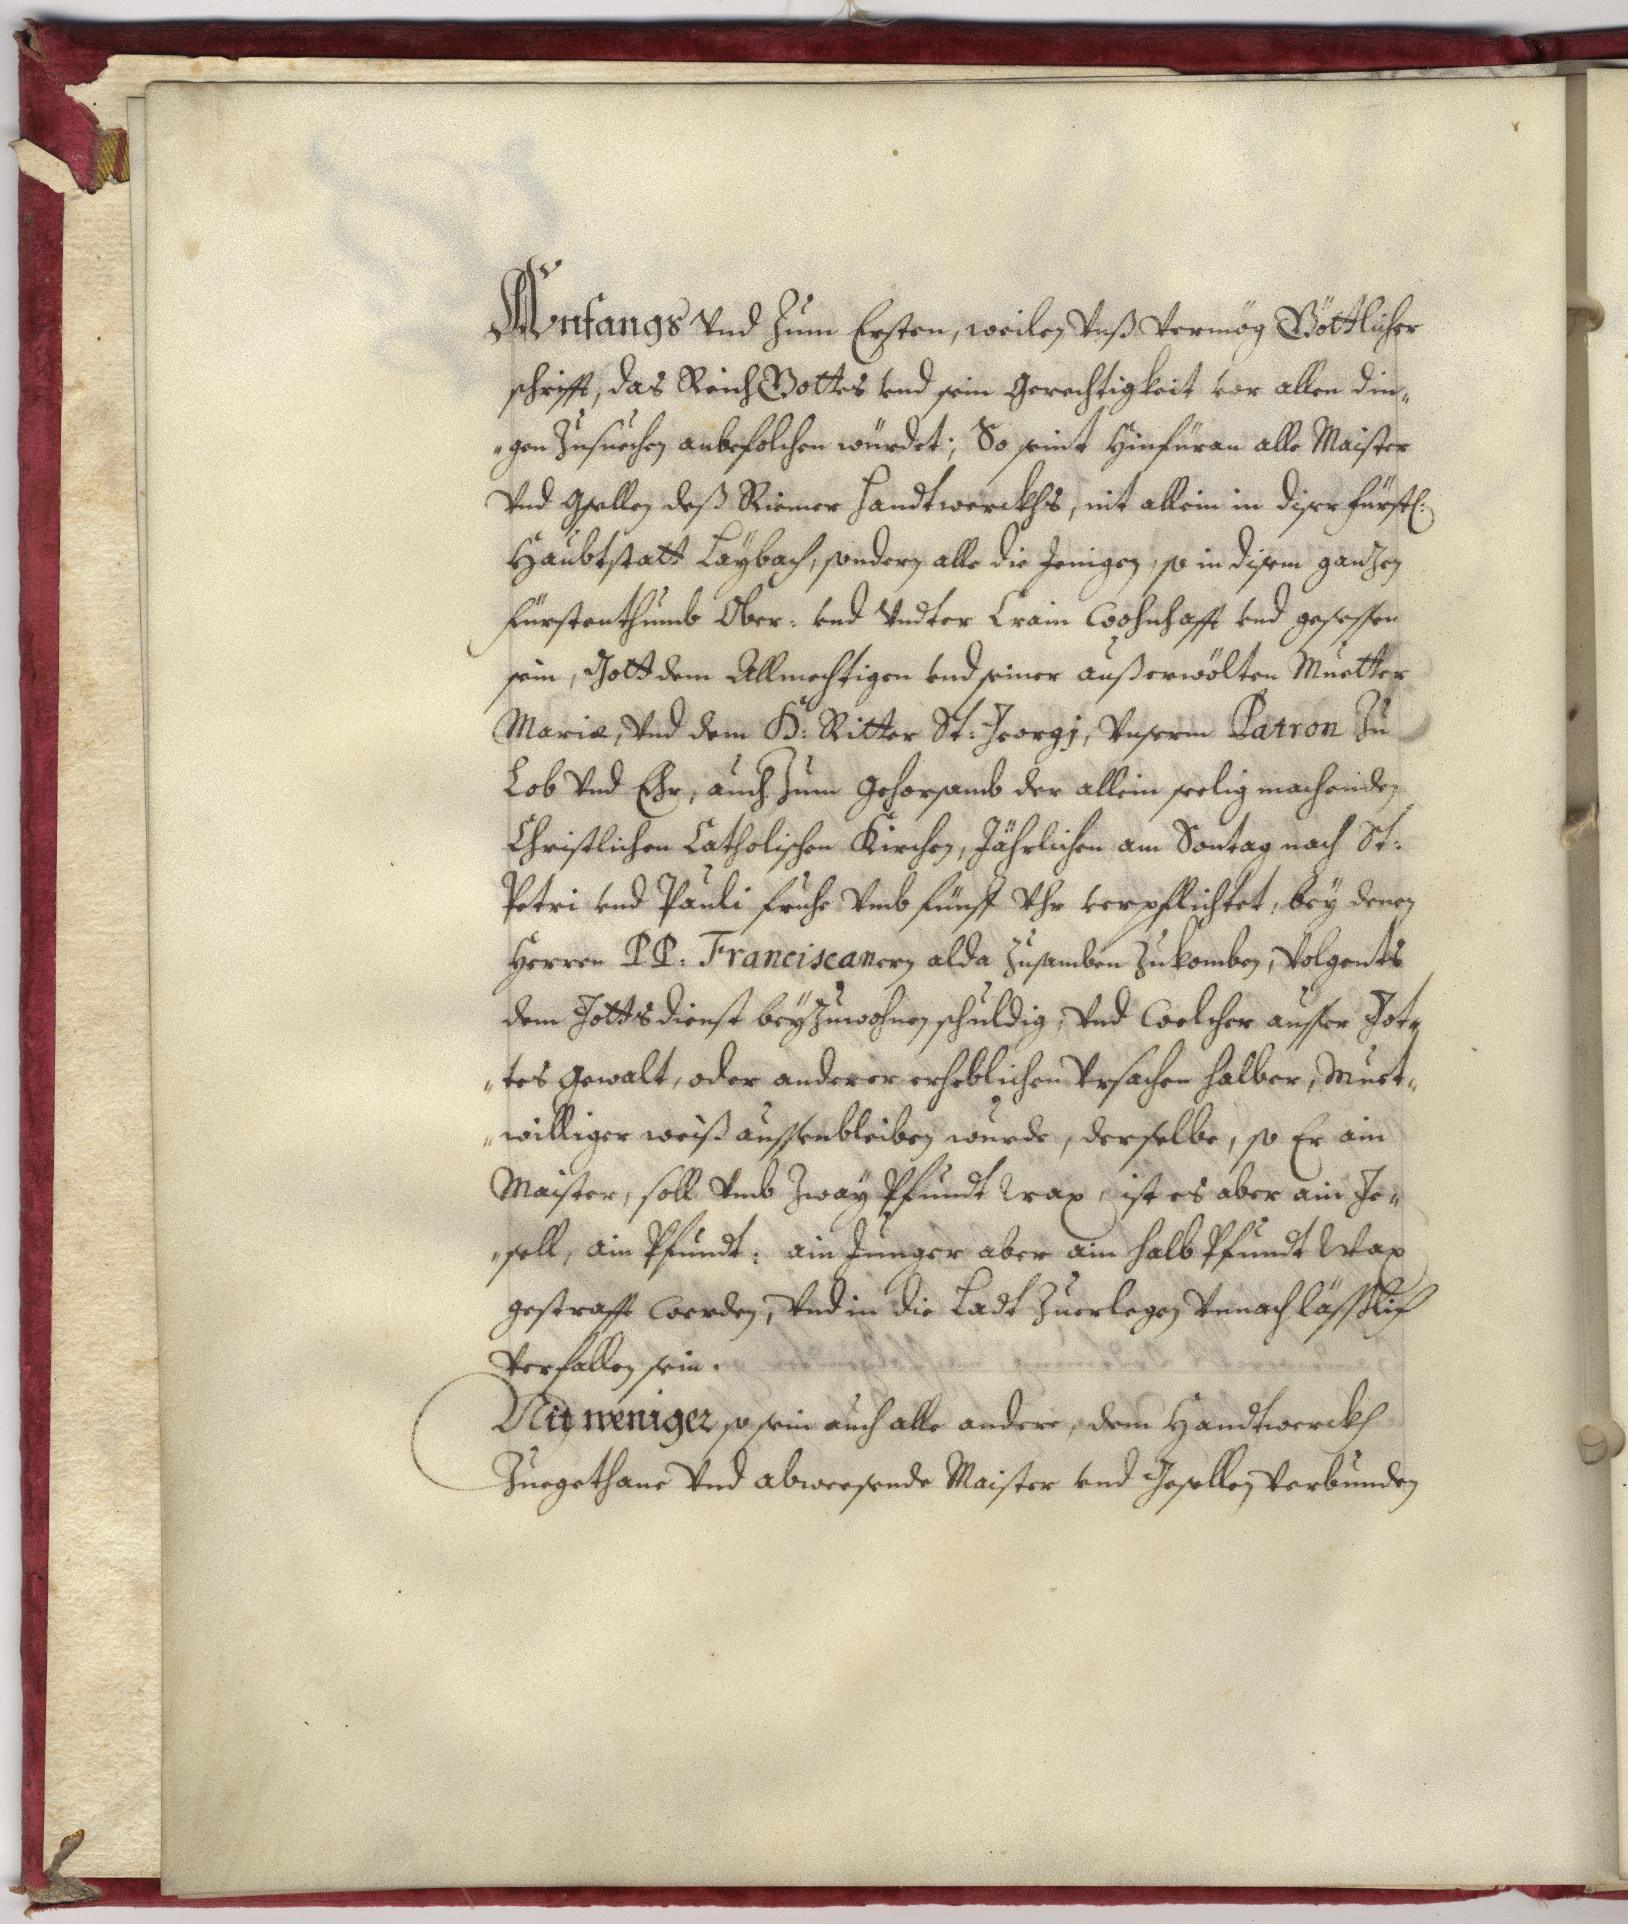 Anfangs Vnd Zum Ersten, weilen Vnß Vermög Göttlicher
schrifft, das Reich Gottes vnd sein Gerechtigkeit vor allen din„
„gen Zusuechen anbefolchen würdet; So seint Hinfüran alle Maister
Vnd Gsellen deß Riemer Handtwerckhs, nit allein in diser Fürstl:
Haubtstatt Laÿbach, sondern alle die Jenigen, so in disem ganzen
Fürstenthumb Ober: vnd Vndter Crain Wohnhafft vnd gesessen
sein, Gott dem Allmechtigen vnd seiner außerwölten Muetter
Mariæ, Vnd dem H: Ritter St: Georgj, Vnserm Patron Zu
Lob Vnd Ehr, auch Zum Gehorsamb der allein seelig machenden
Christlichen Catholischen Kirchen, Jährlichen am Sontag nach St:
Petri vnd Pauli fruhe Vmb fünff Vhr verpflichtet, beÿ denen
Herren P.P: Franciscanern alda Zusamben Zukomben, Volgents
dem Gottsdienst beÿZuwohnen schuldig; Vnd Welcher ausser Got„
„tes Gewalt, oder anderer erheblichen Vrsachen halber, Muet„
„williger weiß aussenbleiben wurde, derselbe, so Er ain
Maister, soll Vmb Zwaÿ Pfundt Wax, ist es aber ain Ge„
„sell, ain Pfundt: ain Junger aber ain halb Pfundt Wax
gestrafft Werden, Vnd in die Ladt Zuerlegen Vnnachläßlich
Verfallen sein.
Nit weniger so sein auch alle andere, dem Handtwerckh
Zuegethane Vnd abweesende Maister vnd Gesellen Verbunden